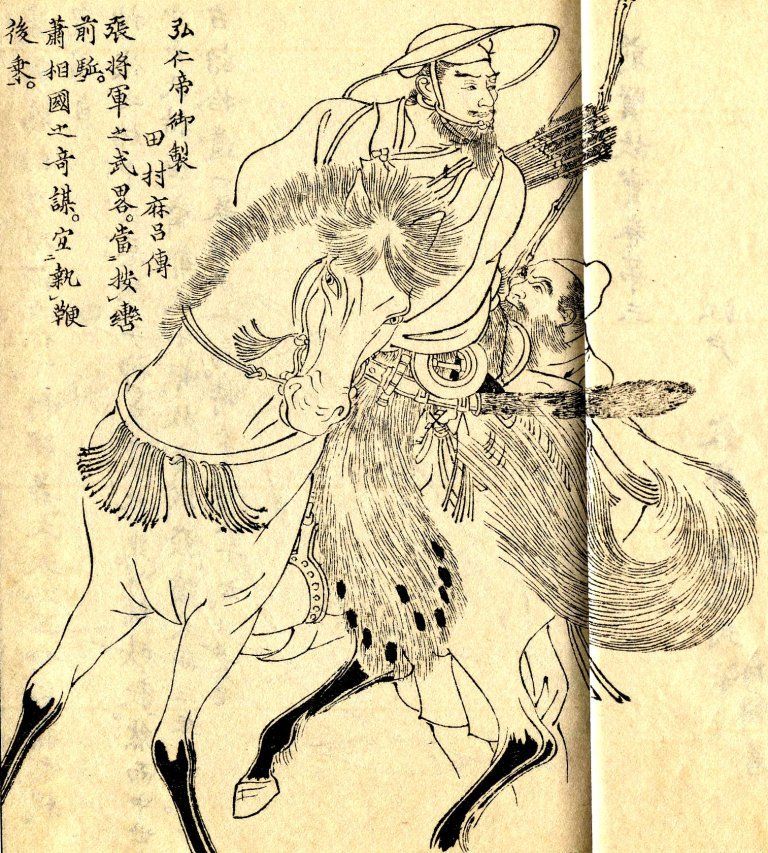 弘仁帝御製
田村麻呂傳
張將軍之武畧。當㆓按㆒轡
前駈。
蕭相國之奇謀。宜㆓執㆒鞭
後乗。